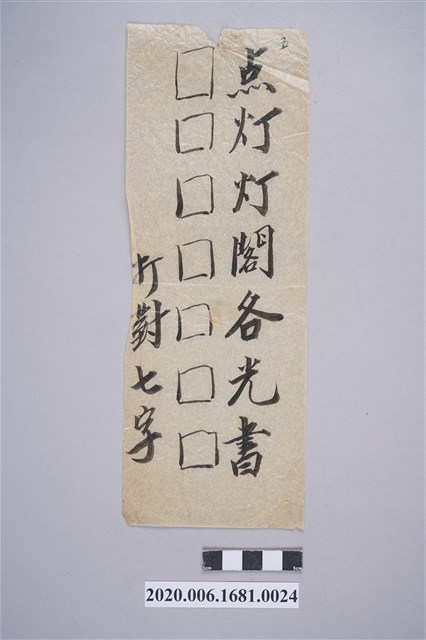 五
点灯灯閣各光書
□□□□□□□
打對七字
2020.006.1681.0024